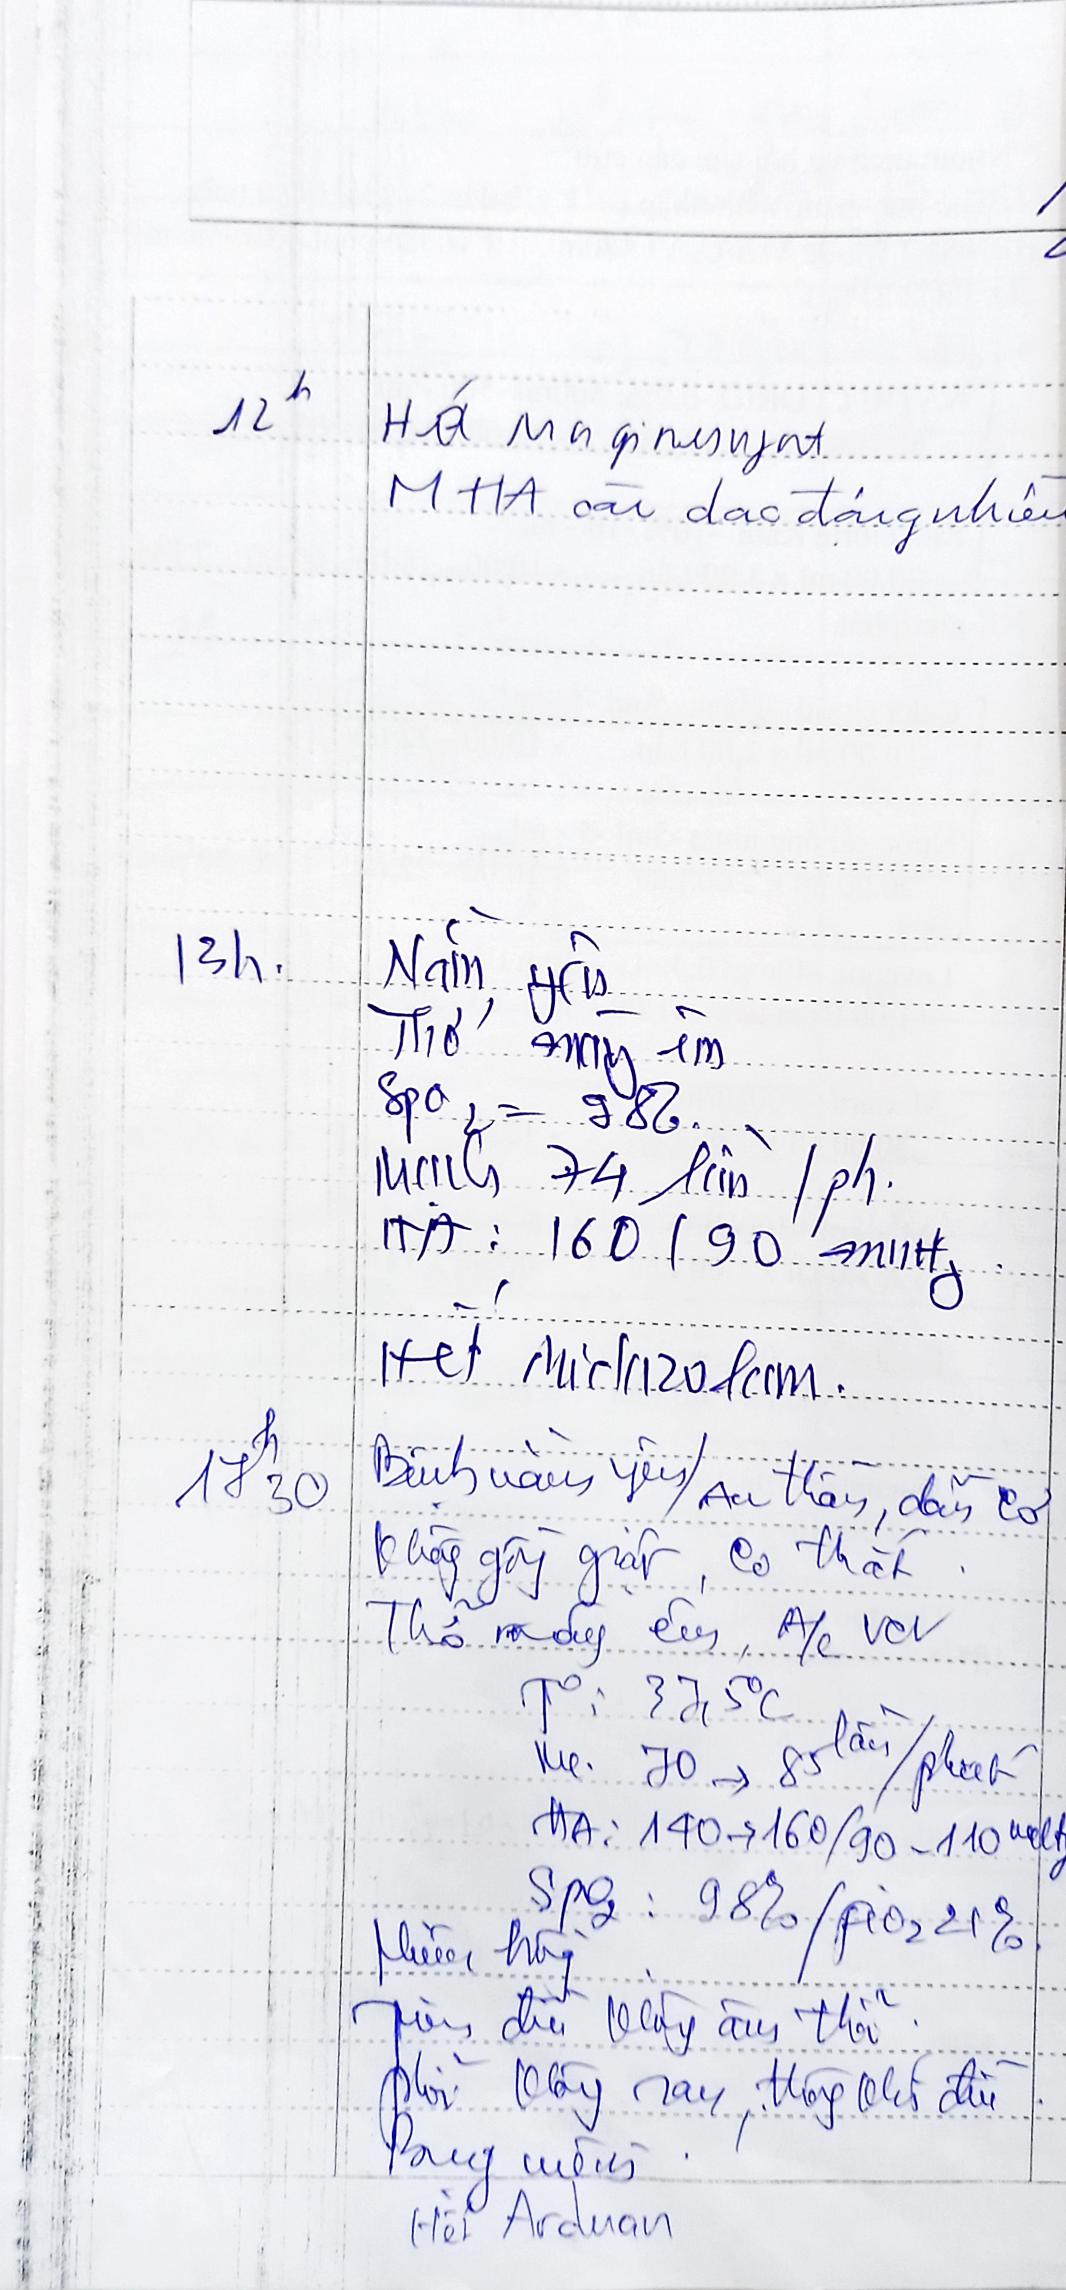 12h
Hết Maginesunjat
M HA còn dao động nhiều
13h.
Nằm yên
Thở máy êm
SpO2 = 98%.
Mạch 74 lần /ph.
HA: 160/90 mmHg.
Hết Midazolam.
17h30
Bệnh nằm yên/An thần, dãn cơ
Không gồng giật, co thắt.
Thở máy êm, A/C VCV
T°: 37,5°C
M. 70 → 85 lần/phút
HA: 140→160/90-110 mmHg
SpO2: 98%/FiO2 21%.
hồng
Tim đều không âm thổi.
Phổi không ran, thông khí đều.
Bụng mềm.
Hết Arduan